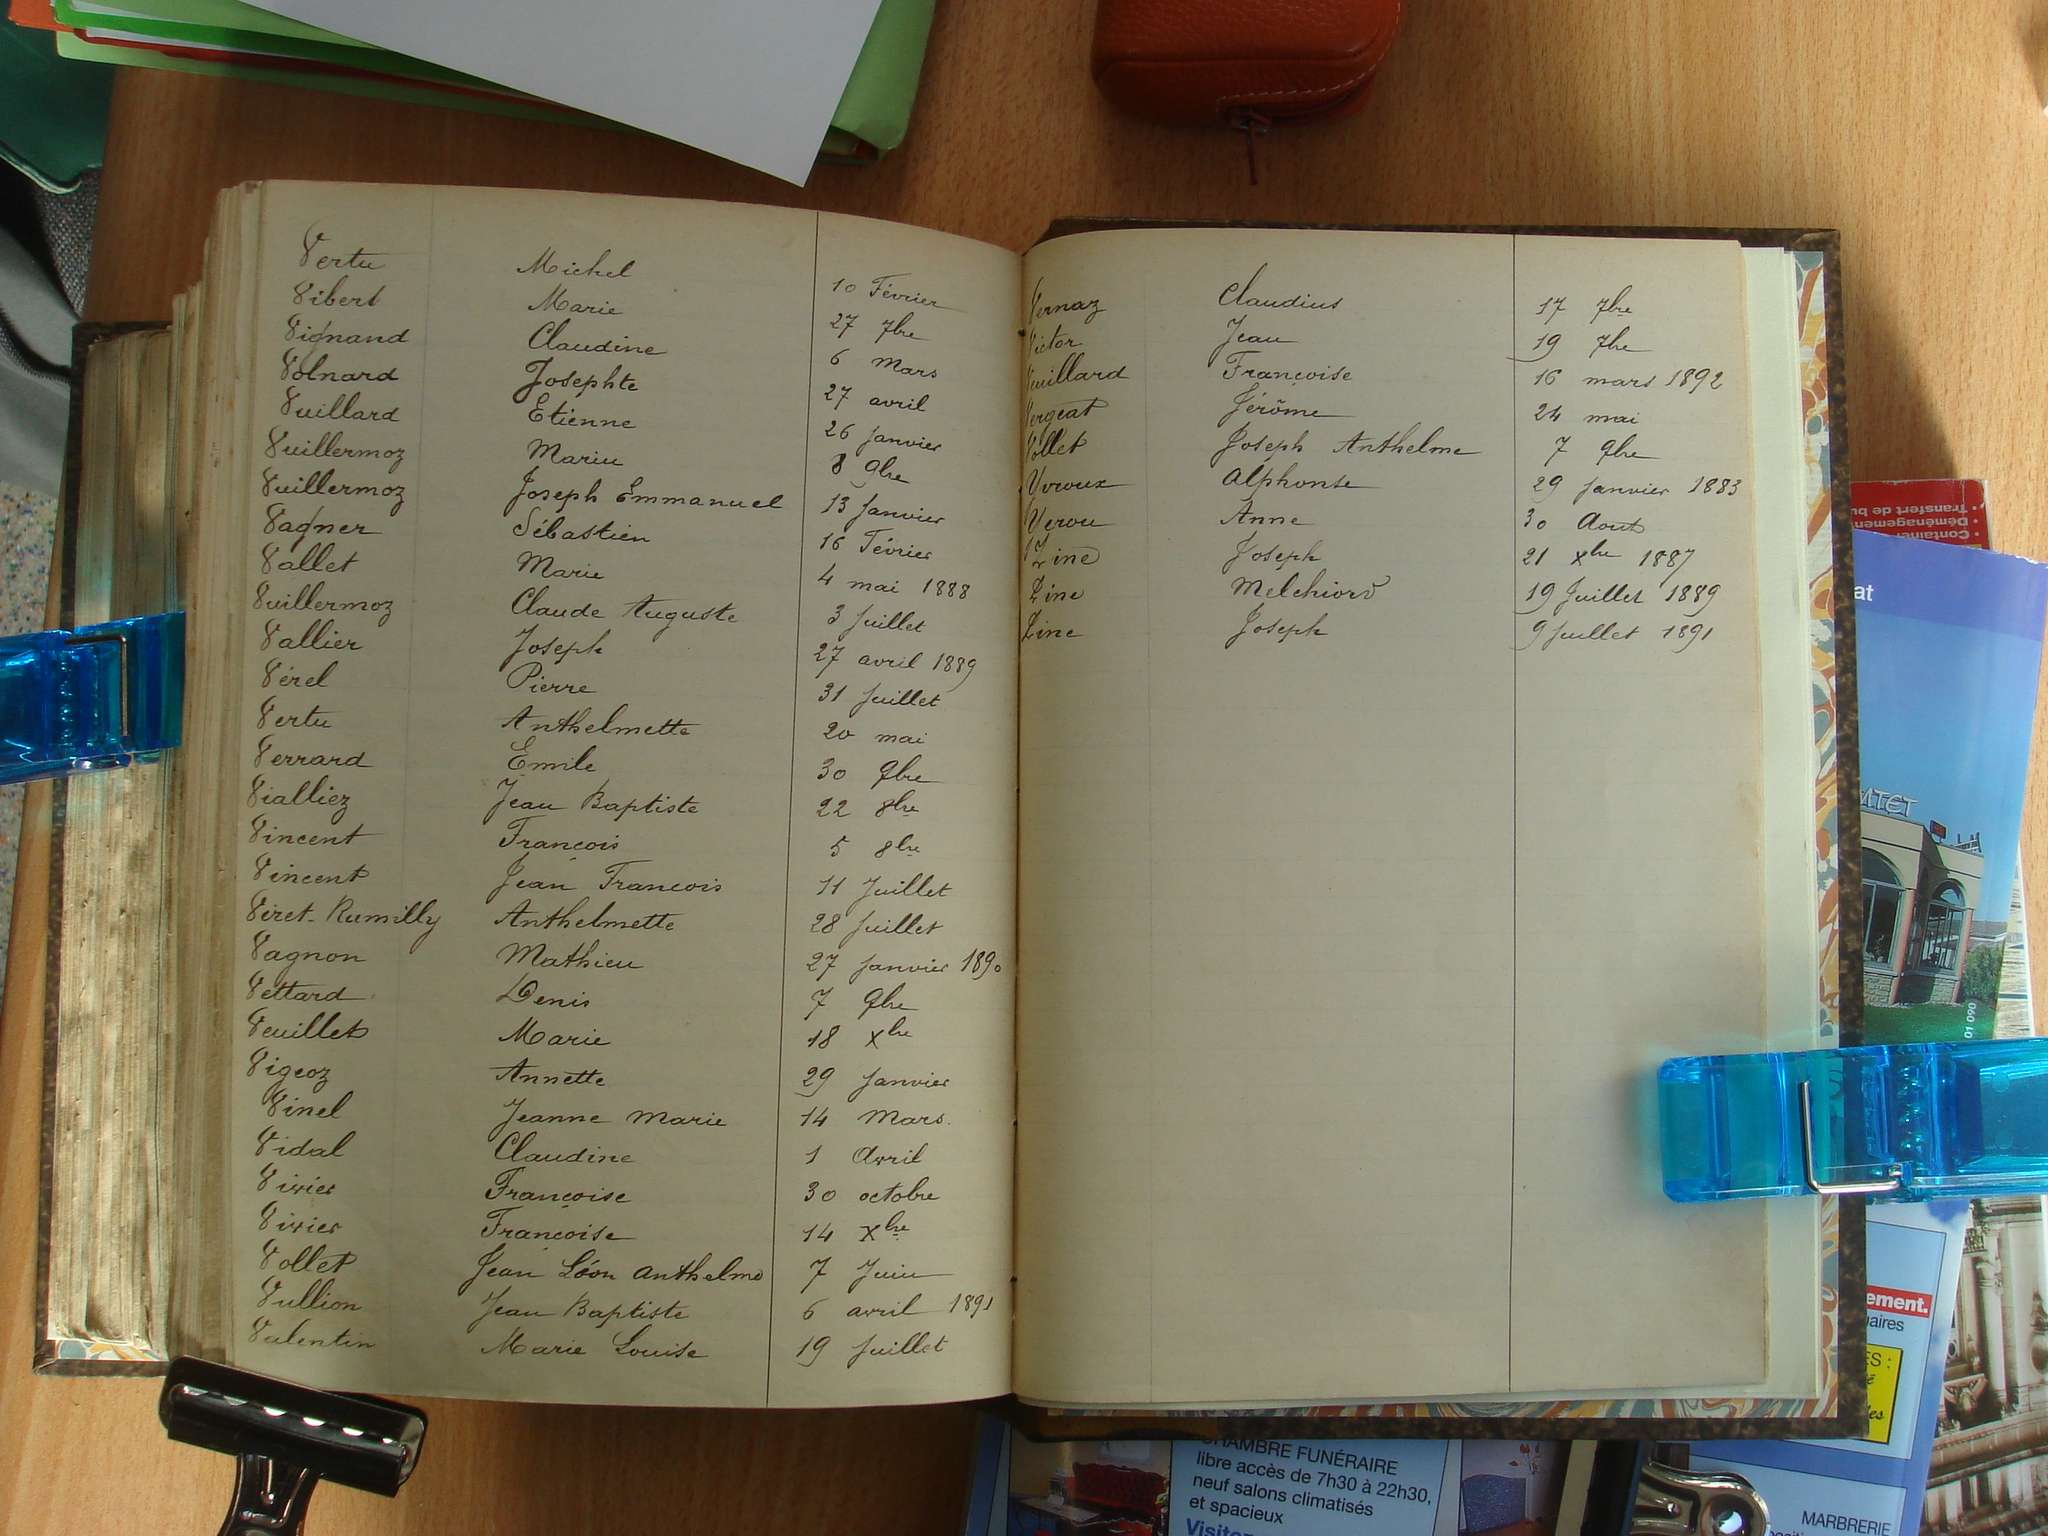 Vertu Michel 10 Février
Vibert Marie 27 7bre
Vignand Claudine 6 Mars
Volnard Josephte 27 avril
Vuillard Etienne 26 Janvier
Vuillermoz Marie 8 9bre
Vuillermoz Joseph Emmanuel 13 Janvier
Vagner Sébastien 16 Février
Vallet Marie 4 mai 1888
Vuillermoz Claude Auguste 3 Juillet
Vallier Joseph 27 avril 1889
Vérel Pierre 31 Juillet
Vertu Anthelmette 20 mai
Verrard Emile 30 9bre
Vialliez Jean Baptiste 22 8bre
Vincent François 5 8bre
Vincent Jean François 11 Juillet
Viret-Rumilly Anthelmette 28 Juillet
Vagnon Mathieu 27 Janvier 1890
Vettard Denis 7 9bre
Veuillet Marie 18 Xbre
Vigeoz Annette 29 Janvier
Vinel Jeanne Marie 14 Mars.
Vidal Claudine 1 Avril
Vivier Françoise 30 octobre
Vivier Françoise 14 Xbre
Vollet Jean Léon Anthelme 7 Juin
Vullion Jean Baptiste 6 avril 1891
Valentin Marie Louise 19 Juillet
Vernaz Claudius 17 7bre
Victor Jean 19 7bre
Vuillard Françoise 16 mars 1892
Vergeat Jérôme 24 mai
Vollet Joseph Anthelme 7 9bre
Yvroux Alphonse 29 Janvier 1883
Yvrou Anne 30 Aout
Zine Joseph 21 Xbre 1887
Zine Melchiord 19 Juillet 1889
Zine Joseph 9 Juillet 1891
Container
Déménagement
Transfert de bu
at
01 090
ement.
uaires
ES :
des
CHAMBRE FUNÉRAIRE
libre accès de 7h30 à 22h30,
neuf salons climatisés
et spacieux
MARBRERIE